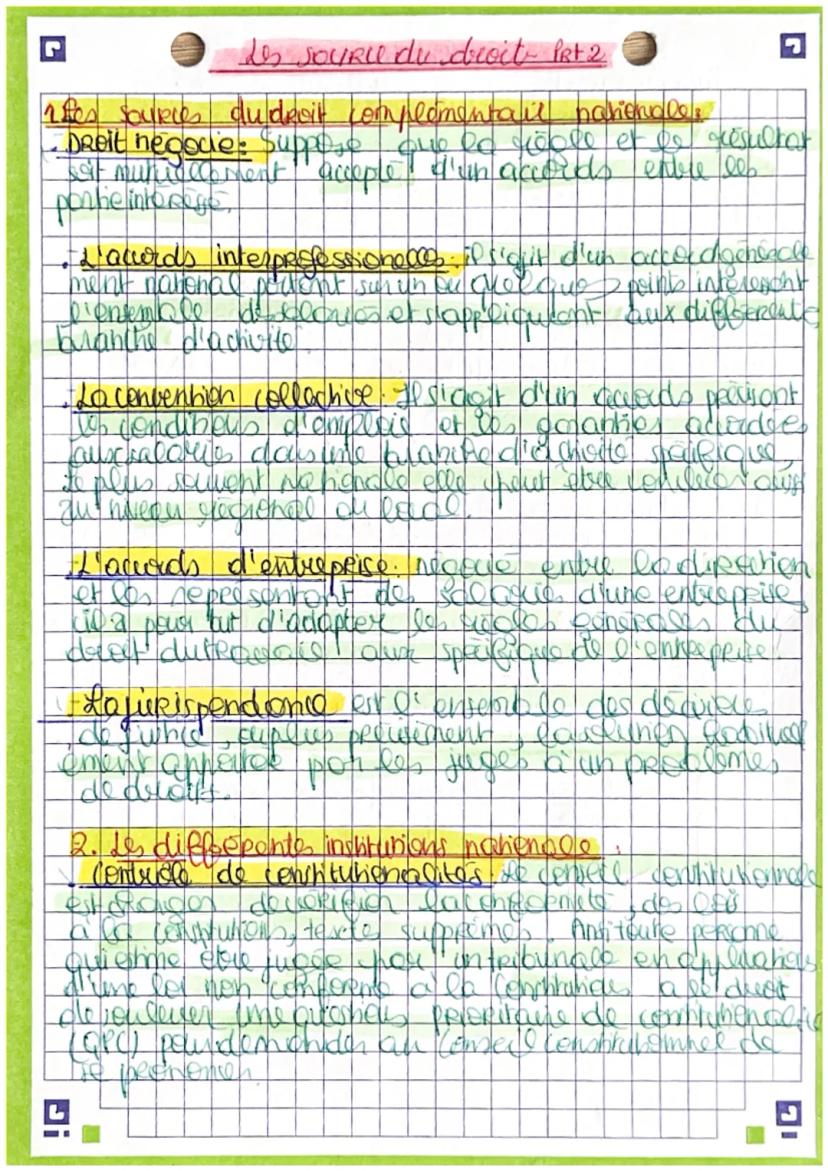 Les source du droit - Prt 2
1. Les sources du droit complémentair nationale:
. Droit négocie: Suppose que la règle et le résultat
soit mutuellement accepté d'un accords entre les
partie intéressé.
. L'accords interprofessionelles: il s'agit d'un accord générale
ment national portent sur un ou quelques points intéressant
l'ensemble des salariés et s'appliquant aux différente
branche d'activité
. La convention collective: Il s'agit d'un accords précisant
les conditions d'emploie et les garanties accordées
aux salariés dans une branche d'activité spécifique,
le plus souvent nationale elle peut être conclue aussi
au niveau régional ou local.
. L'accords d'entreprise: négocié entre la direction
et les représentant des salariés d'une entreprise,
il a pour but d'adapter les règles générales du
droit du travail aux spécifique de l'entreprise.
- La jurispendance est l'ensemble des décisions
de justice, ou plus précisément, la solution
ement apportée par les juges à un problèmes
de droits.
2. Les différentes institutions nationale:
. Contrôle de constitutionalités: Le conseil constitutionnel
est chargés de vérifier la conformité, des lois
à la constitutions, textes supprèmes. toute personne
qui estime être jugée par un tribunale en applications
d'une loi non conforme à la Constitutions a le droit
de soulever une questions prioritaire de constitutionalité
(QPC) pour demander au Conseil Constitutionnel de
se prononcer